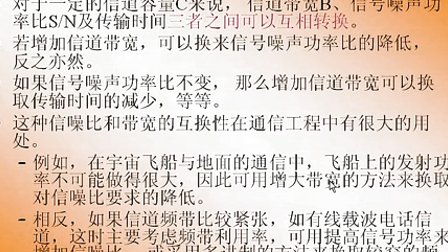 对于一定的信道容量C来说，信道带宽B、信号噪声功
率比S/N及传输时间三者之间可以互相转换。
若增加信道带宽，可以换来信号噪声功率比的降低，
反之亦然。
如果信号噪声功率比不变，那么增加信道带宽可以换
取传输时间的减少，等等。
这种信噪比和带宽的互换性在通信工程中有很大的用
处。
– 例如，在宇宙飞船与地面的通信中，飞船上的发射功
率不可能做得很大，因此可用增大带宽的方法来换取
对信噪比要求的降低。
– 相反，如果信道频带比较紧张，如有线载波电话信
道，这时主要考虑频带利用率，可用提高信号功率来
增加信噪比，或采用多进制的方法来换取较窄的频